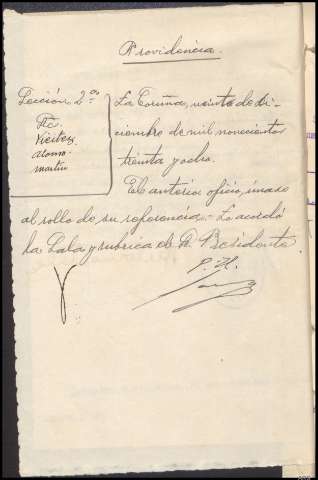 Providencia.
Sección 2ª
Vieitez
Alonso
Martin
La Coruña, veinte de Di-
ciembre de mil novecientos
treinta y ocho.
El anterior oficio, únase
al rollo de su referencia. Lo acordó
la Sala y rubrica el Sr. Presidente.
P. H.